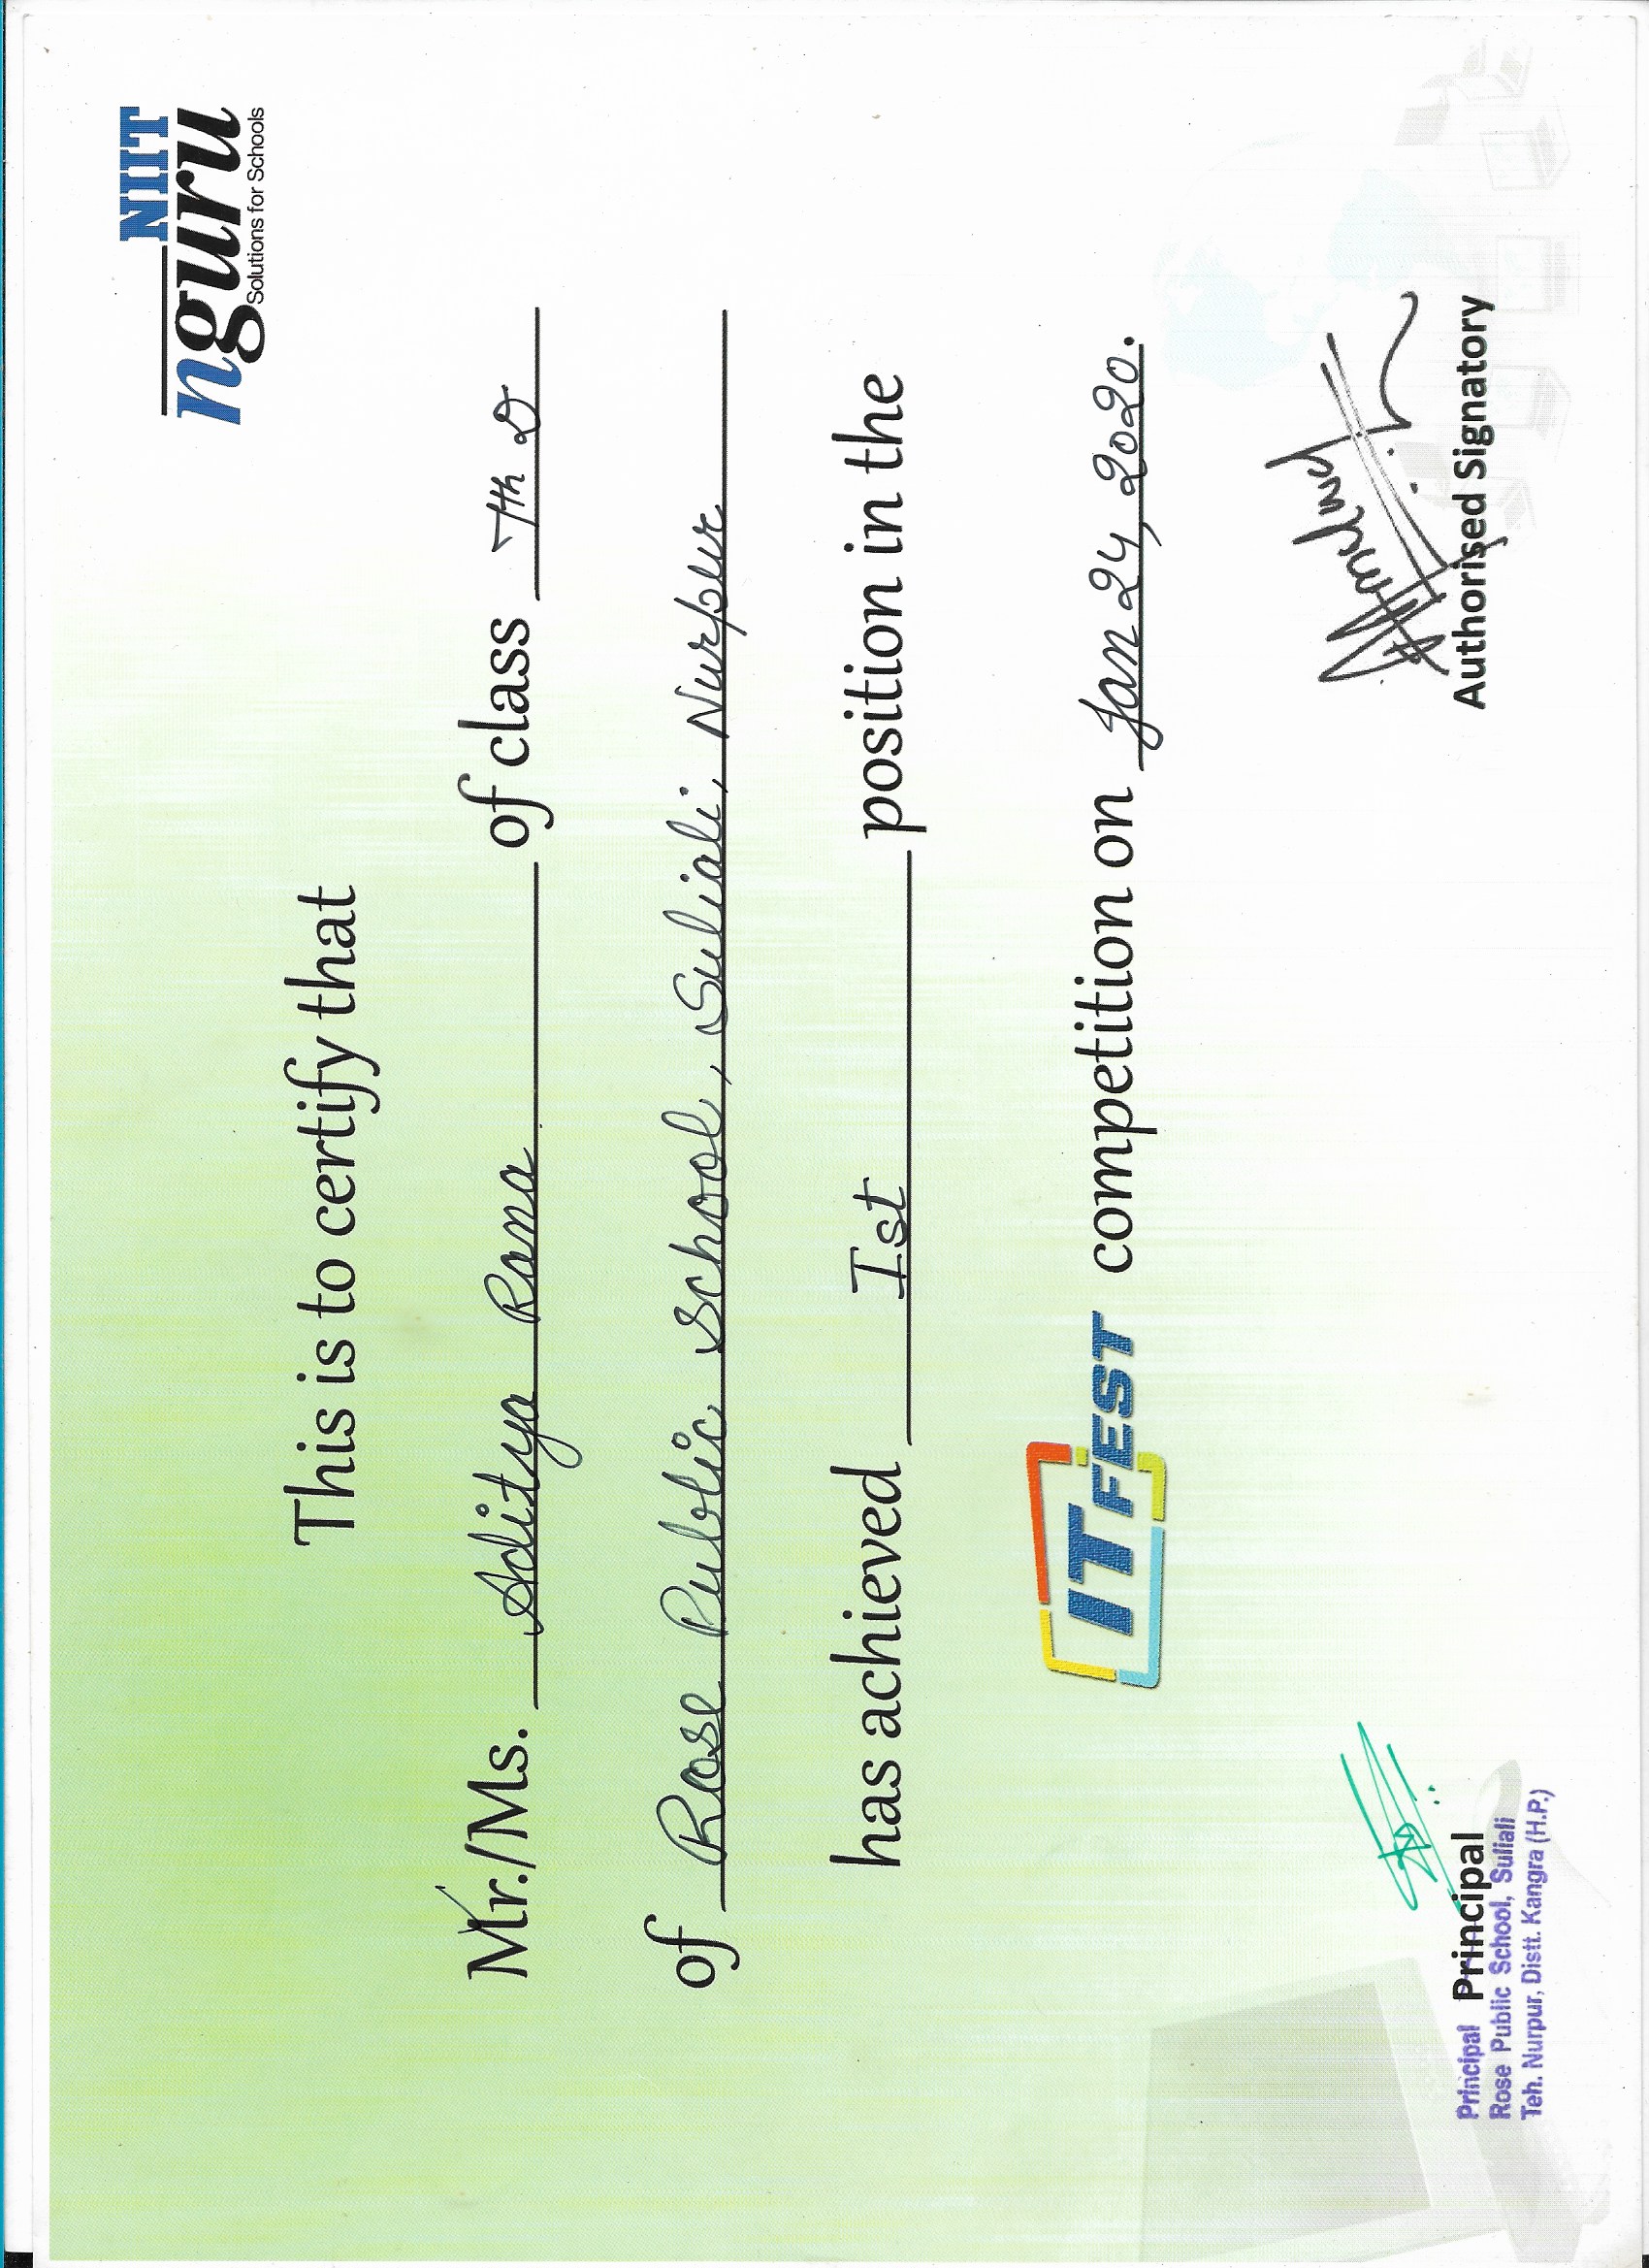 NIIT
nguru
Solutions for Schools
This is to certify that
Mr./Ms. Aditya Rana of class 7th D
of Rose Public School, Suliali, Nurpur
has achieved Ist position in the
IT FEST competition on Jan 24, 2020.
Principal Principal
Rose Public School, Suliali
Teh. Nurpur, Distt. Kangra (H.P.)
Authorised Signatory